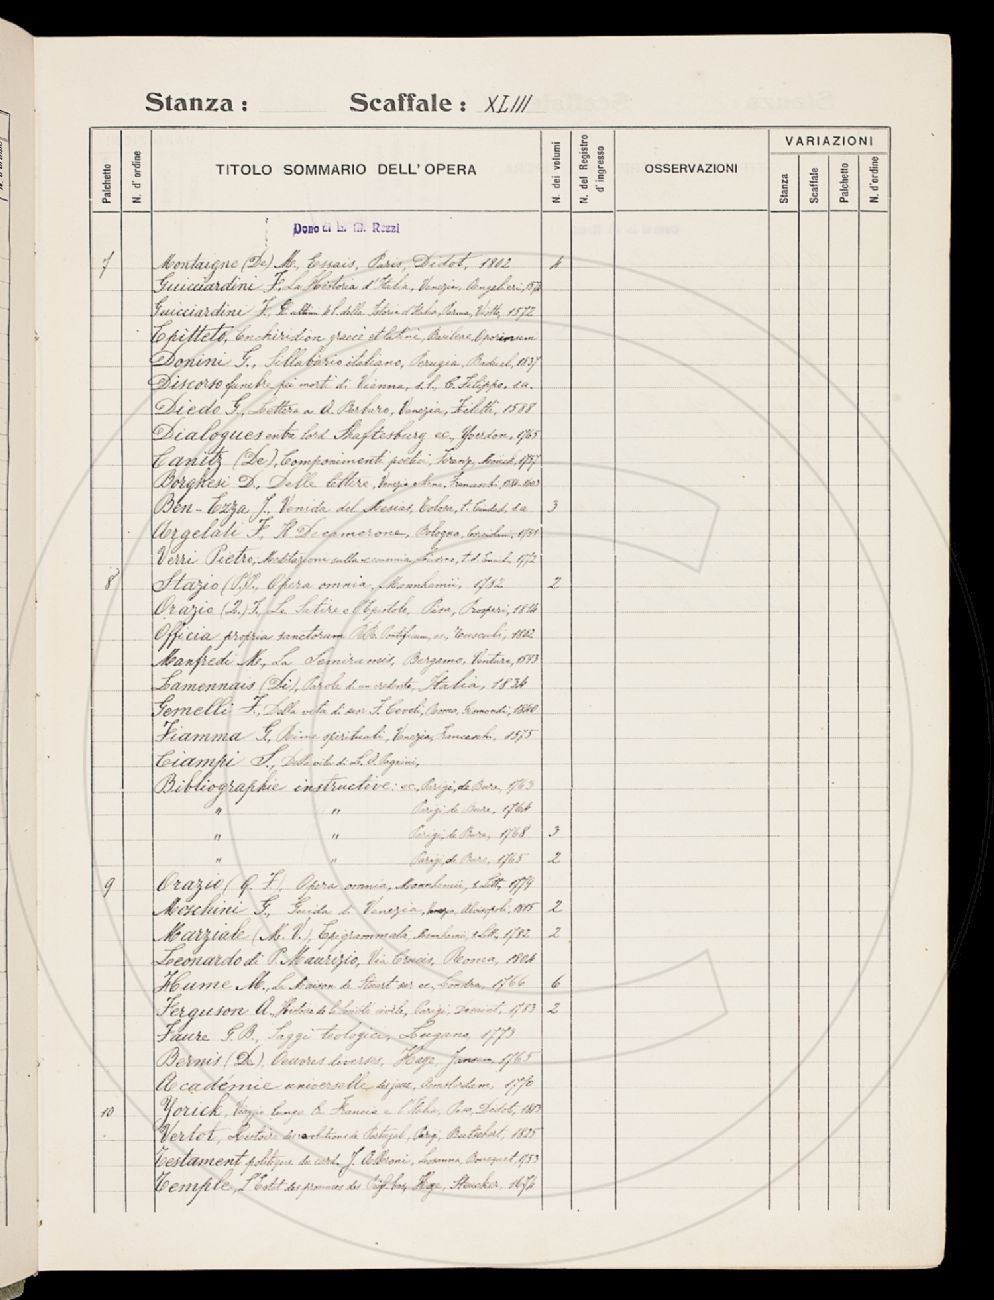 Stanza: Scaffale: XLIII
Palchetto N. d'ordine TITOLO SOMMARIO DELL'OPERA N. dei volumi N. del Registro d'ingresso OSSERVAZIONI VARIAZIONI
Stanza Scaffale Palchetto N. d'ordine
Dono di Rezzi
7 Montaigne (De) M., Essais, Paris, Didot, 1802 4
Guicciardini F., La Historia d'Italia, Venezia, Angelieri,
Guicciardini F., Gli ultimi della Istoria d'Italia, Parma, Viotti, 1572
Epitteto, Enchiridion graece et latine, Basileae, Oporinum
Donini G., Sillabario italiano, Perugia, Baduel, 1837
Discorso funebre pei morti di Vienna, s.l., C. Filippo, s.a.
Diedo G., Lettera a A. Barbaro, Venezia, Ziletti, 1588
Dialogues entre lord Shaftesburg ec., Yverdon, 1765
Canitz (De), Componimenti poetici, Firenze, Mouck, 1757
Borghesi D., Delle lettere, Venezia e Siena, Franceschi,
Ben-Ezza J., Venida del Mesias, s.a. 3
Argelati F., Il Decamerone, Bologna, 1751
Verri Pietro, Meditazioni sulla economia, Livorno, 1772
8 Stazio (P.P., Opera omnia, Mannhemii, 1782 2
Orazio (Q.) F., Le Satire e l'Epistole, Pisa, Prosperi, 1814
Officia propria sanctorum Pontificum, ec., Tusculi, 1802
Manfredi M., La Semiramis, Bergamo, Ventura, 1593
Lamennais (Di), Parole di un credente, Italia, 1834
Gemelli F., Della vita di F. Roma, 1840
Fiamma G., Rime spirituali, Venezia, Franceschi, 1575
Ciampi S., Della vita di
Bibliographie instructive: ec., Parigi, de Bure, 1763
" " Parigi, de Bure, 1764
" " Parigi, de Bure, 1768 3
" " Parigi, de Bure, 1765 2
9 Orazio (Q. F.), Opera omnia, Mannhemii, s. Lett., 1779
Moschini G., Guida di Venezia, Venezia, Alvisopoli, 1815 2
Marziale (M. V.), Epigrammata, Mannhemii, s. Lett., 1782 2
Leonardo di P. Maurizio, Via Crucis, Roma, 1804
Hume M., La Maison de Stuart sur ec., Londra, 1766 6
Ferguson A., Histoire de la Société civile, Parigi, 1783 2
Faure G.B., Saggi teologici, Lugano, 1773
Bernis (De), Oeuvres diverses, Haye, 1765
Académie universelle des jeux, Amsterdam, 1770
10 Yorick, Viaggio lungo la Francia e l'Italia, Pisa, Didot,
Vertot, Histoire des revolutions de Portugal, Parigi, 1825
Testament politique du card. J. Alberoni, Losanna, Bousquet, 1753
Temple, L'Estat des provinces des Haye, Steucker, 1674